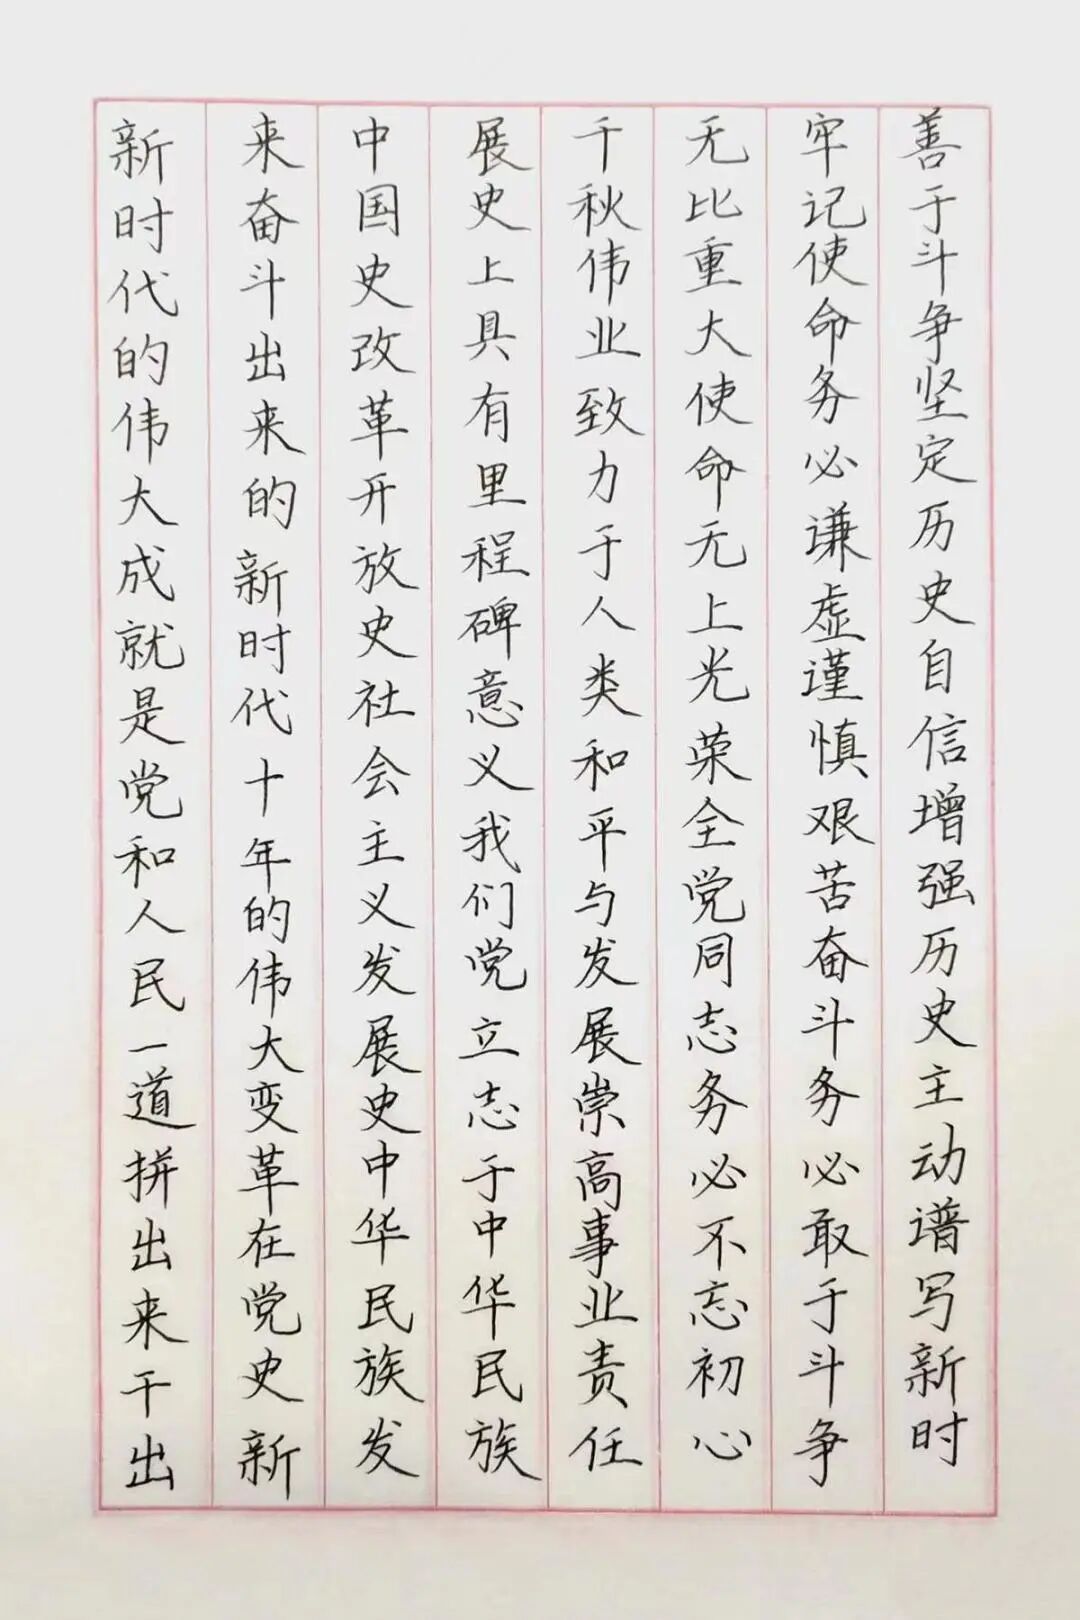 新时代的伟大成就是党和人民一道拼出来干出
来奋斗出来的新时代十年的伟大变革在党史新
中国史改革开放史社会主义发展史中华民族发
展史上具有里程碑意义我们党立志于中华民族
千秋伟业致力于人类和平与发展崇高事业责任
无比重大使命无上光荣全党同志务必不忘初心
牢记使命务必谦虚谨慎艰苦奋斗务必敢于斗争
善于斗争坚定历史自信增强历史主动谱写新时